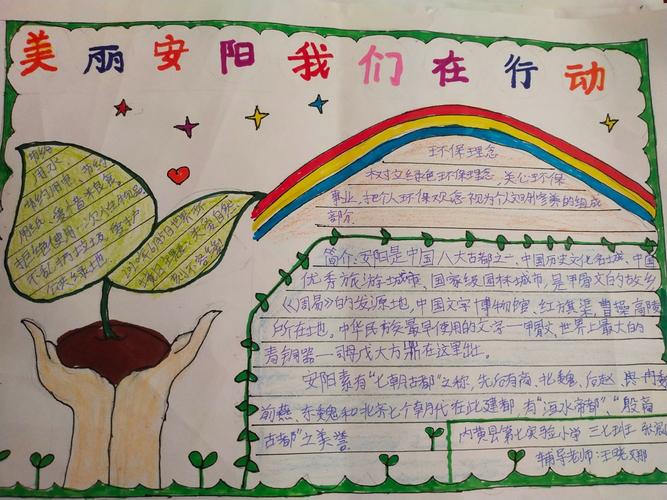 美丽安阳我们在行动
节约
用水
节约用电 节约
服氏、爱惜粮食
拒绝使用一次性物品
不乱扔垃圾 爱护
公共绿地
环保理念
树立绿色环保理念,关心环保
事业,把个人环保观念视为个人文明修养的组成
部分
简介:安阳是中国八大古都之一、中国历史文化名城、中国
优秀旅游城市、国家级园林城市,是甲骨文的故乡
《周易》的发源地,中国文字博物馆、红旗渠,曹操高陵
所在地。中华民族最早使用的文字一甲骨文、世界上最大的
青铜器一司母戊大方鼎在这里出。
安阳素有"七朝古都"之称,先后有商、北魏、后赵、冉魏
前燕、东魏和北齐七个朝代在此建都,有"洹水帝都"、"殷商
古都"之美誉。
内黄县第七实验小学 三七班
辅导老师:王晓娜